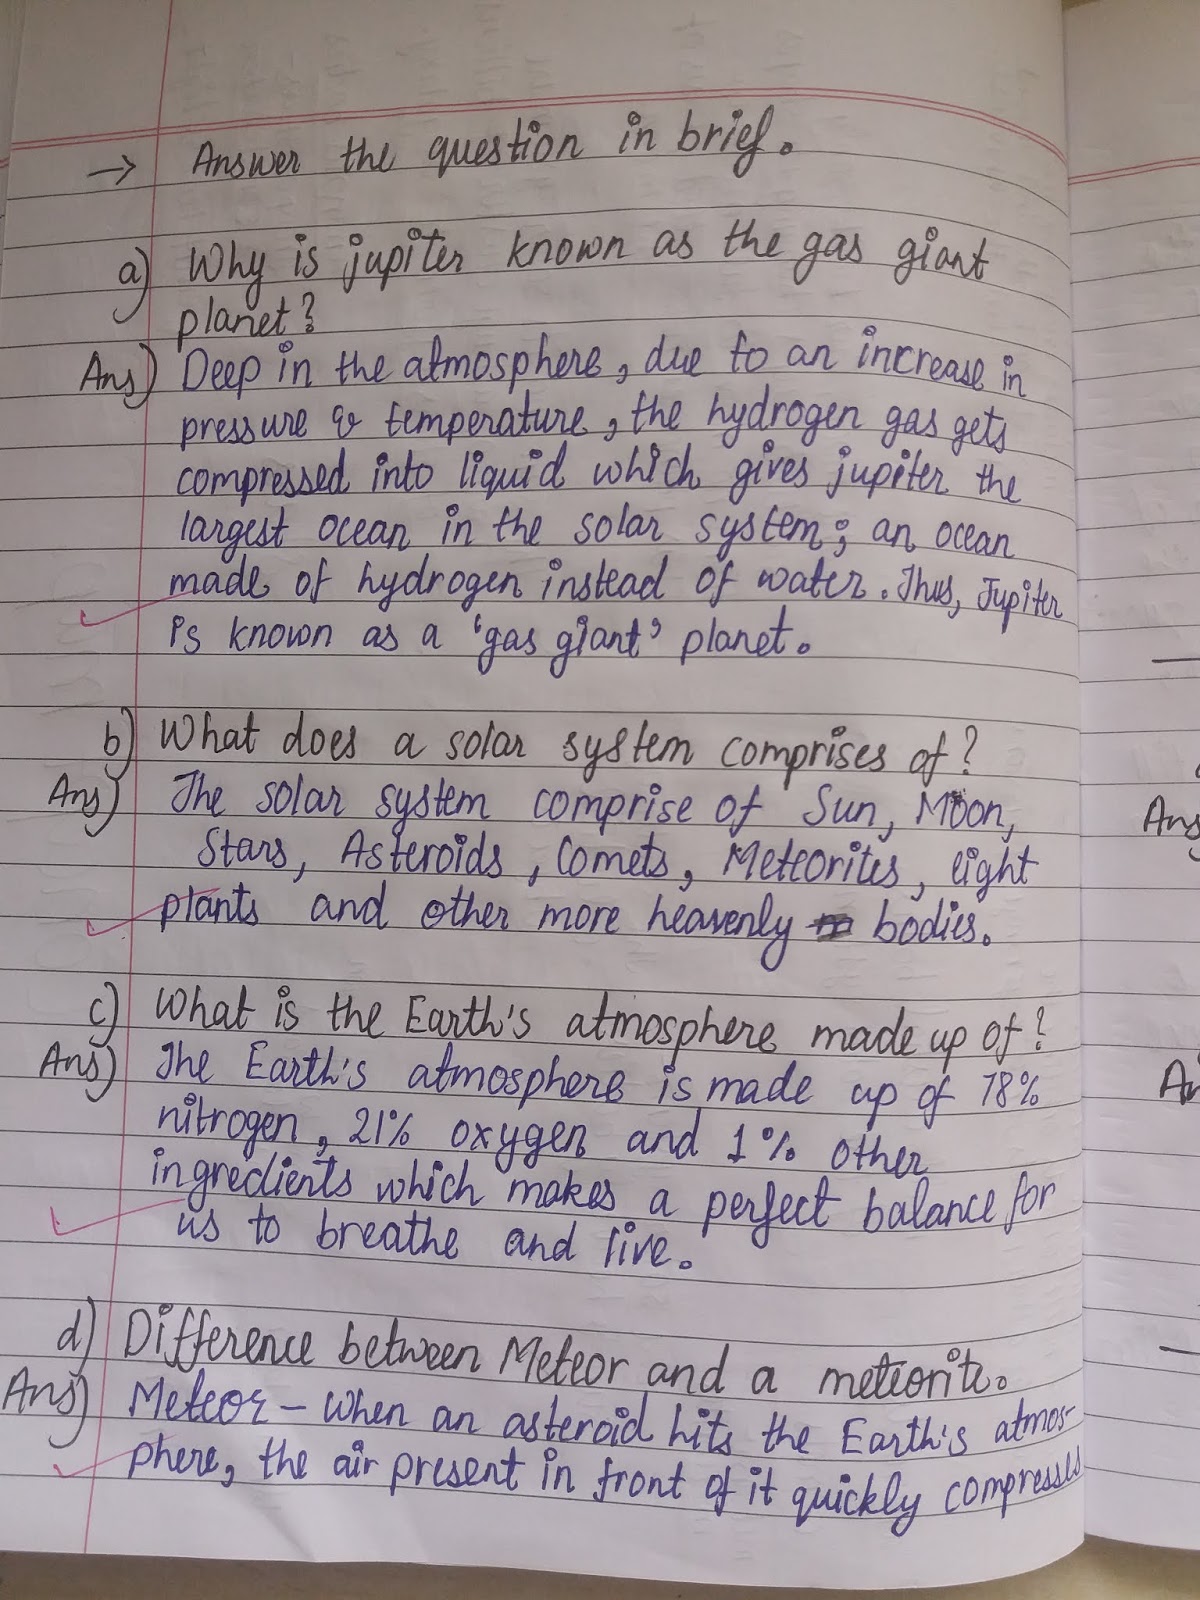 → Answer the question in brief.
a) Why is jupiter known as the gas giant
planet?
Ans) Deep in the atmosphere, due to an increase in
pressure & temperature, the hydrogen gas gets
compressed into liquid which gives jupiter the
largest ocean in the solar system; an ocean
made of hydrogen instead of water. Thus, Jupiter
is known as a 'gas giant' planet.
b) What does a solar system comprises of?
Ans) The solar system comprise of Sun, Moon,
Stars, Asteroids, Comets, Meteorites, eight
plants and other more heavenly bodies.
c) What is the Earth's atmosphere made up of?
Ans) The Earth's atmosphere is made up of 78%
nitrogen, 21% oxygen and 1% other
ingredients which makes a perfect balance for
us to breathe and live.
d) Difference between Meteor and a meteorite.
Ans) Meteor - When an asteroid hits the Earth's atmos-
phere, the air present in front of it quickly compresses
Ans
An